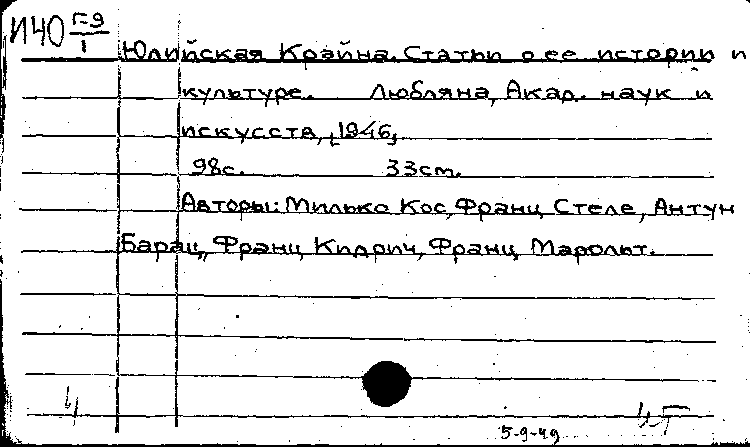 И40 Г-9
1
Юлийская Крайна. Статьи о ее истории и
культуре. Любляна, Акад. наук и
искусств, [1946].
98с. 33cm.
Авторы: Милько Кос, Франц Стеле, Антун
Барац, Франц Кидрич, Франц Марольт.
5-9-49